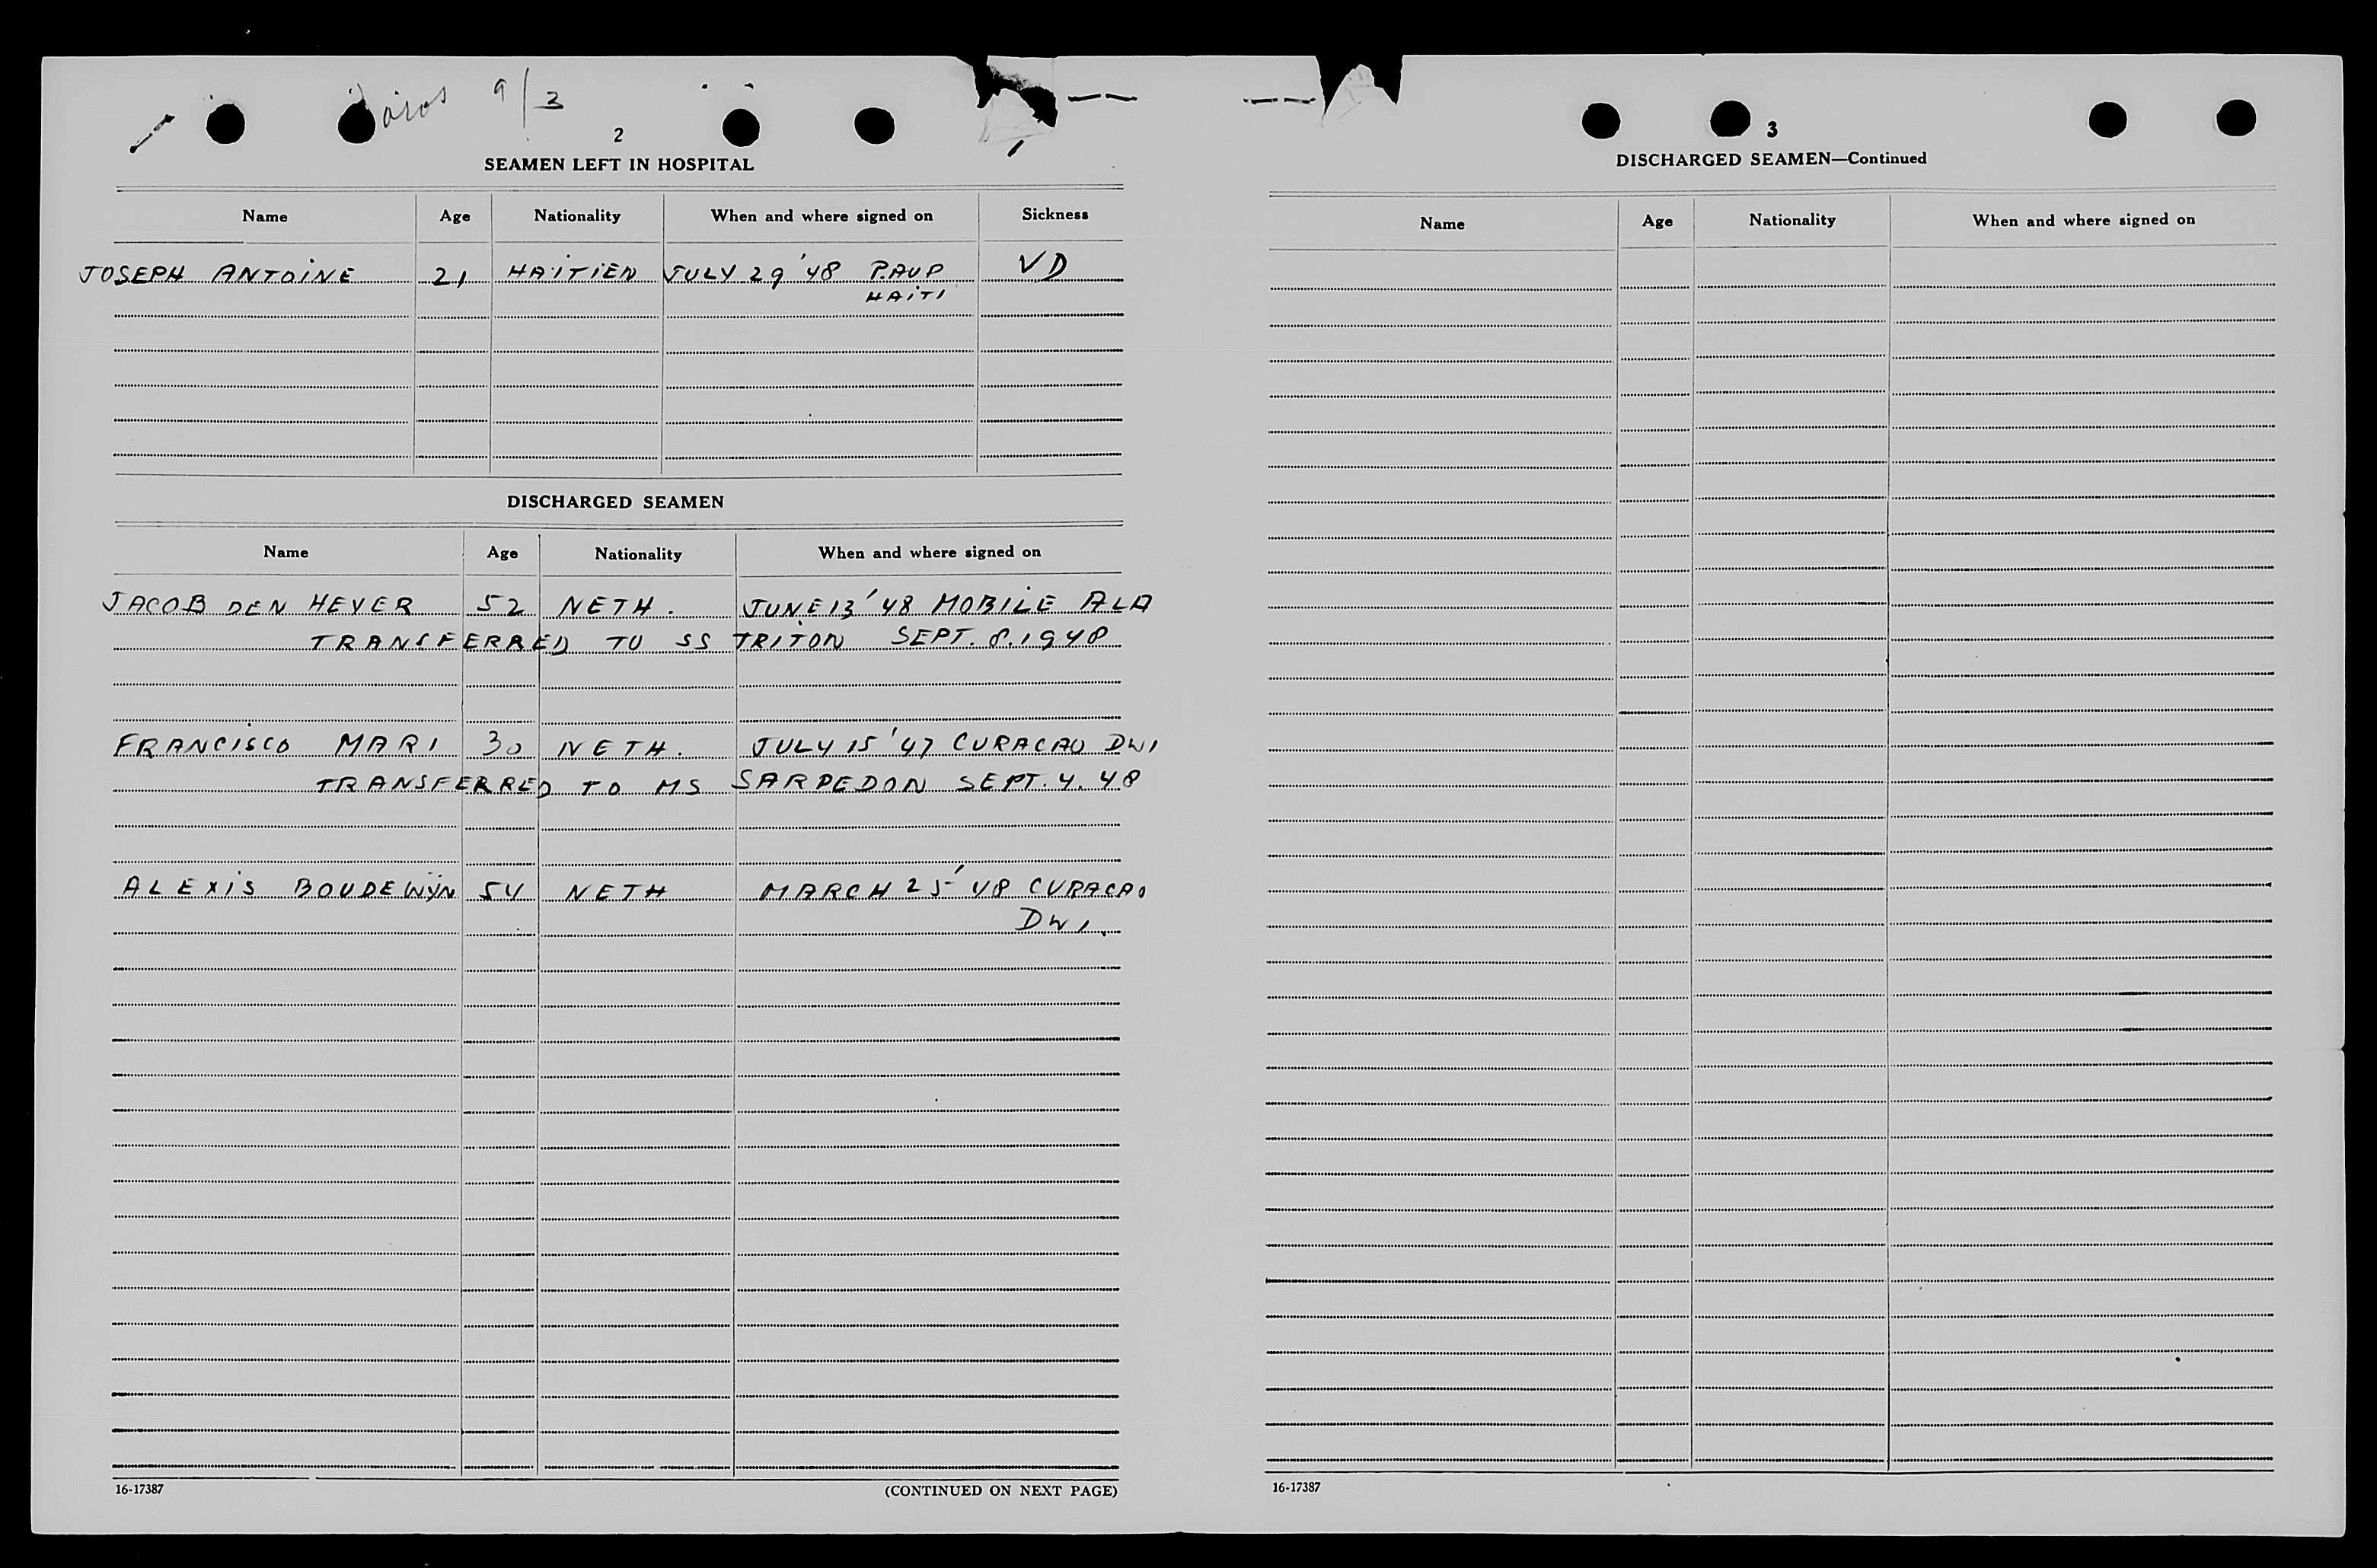 9/3
2
SEAMEN LEFT IN HOSPITAL
Name Age Nationality When and where signed on Sickness
JOSEPH ANTOINE 21 HAITIEN JULY 29 '48 P.AUP VD
HAITI
DISCHARGED SEAMEN
Name Age Nationality When and where signed on
JACOB DEN HEVER 52 NETH. JUNE 13 '48 MOBILE ALA
TRANSFERRED TO SS TRITON SEPT. 8. 1948
FRANCISCO MARI 30 NETH. JULY 15 '47 CURACAO DWI
TRANSFERRED TO MS SARPEDON SEPT. 4. 48
ALEXIS BOUDEWIJN 54 NETH MARCH 25 '48 CURACAO
DWI.
16-17387 (CONTINUED ON NEXT PAGE)
3
DISCHARGED SEAMEN—Continued
Name Age Nationality When and where signed on
16-17387